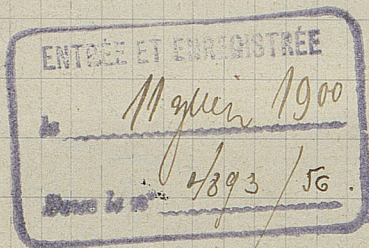 ENTRÉE ET ENREGISTRÉE
le 11 juin 1900
sous le n° /56.